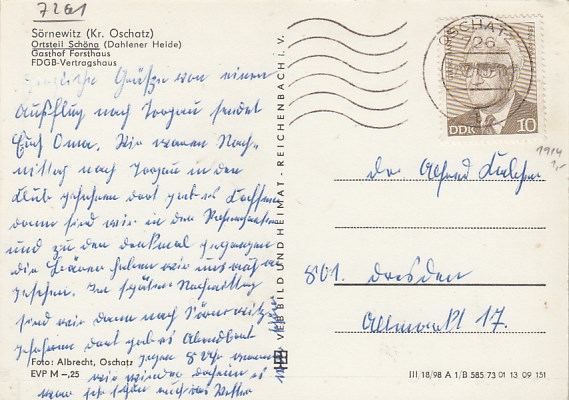 7261
Sörnewitz (Kr. Oschatz)
Ortsteil Schöna (Dahlener Heide)
Gasthof Forsthaus
FDGB-Vertragshaus
Grüße von einem
Ausflug nach Torgau sendet
Euch Oma. Wir waren Nach-
mittag nach Torgau in den
Club gefahren dort gab es
dann sind wir in den
und zu den Denkmal gegangen
die haben wir uns auch an
gesehen. Im späten Nachmittag
sind wir dann nach Sörnewitz
gefahren dort gab es Abendbrot
gegen 8 Uhr waren
wir wieder daheim es
war sehr schön auch das Wetter
Foto: Albrecht, Oschatz
EVP M –,25
VEB BILD UND HEIMAT · REICHENBACH i. V.
OSCHATZ
26
DDR 10
1914
1,-
801. Dresden
Altmarkt 17.
III 18/98 A 1/B 585/73 01 13 09 151